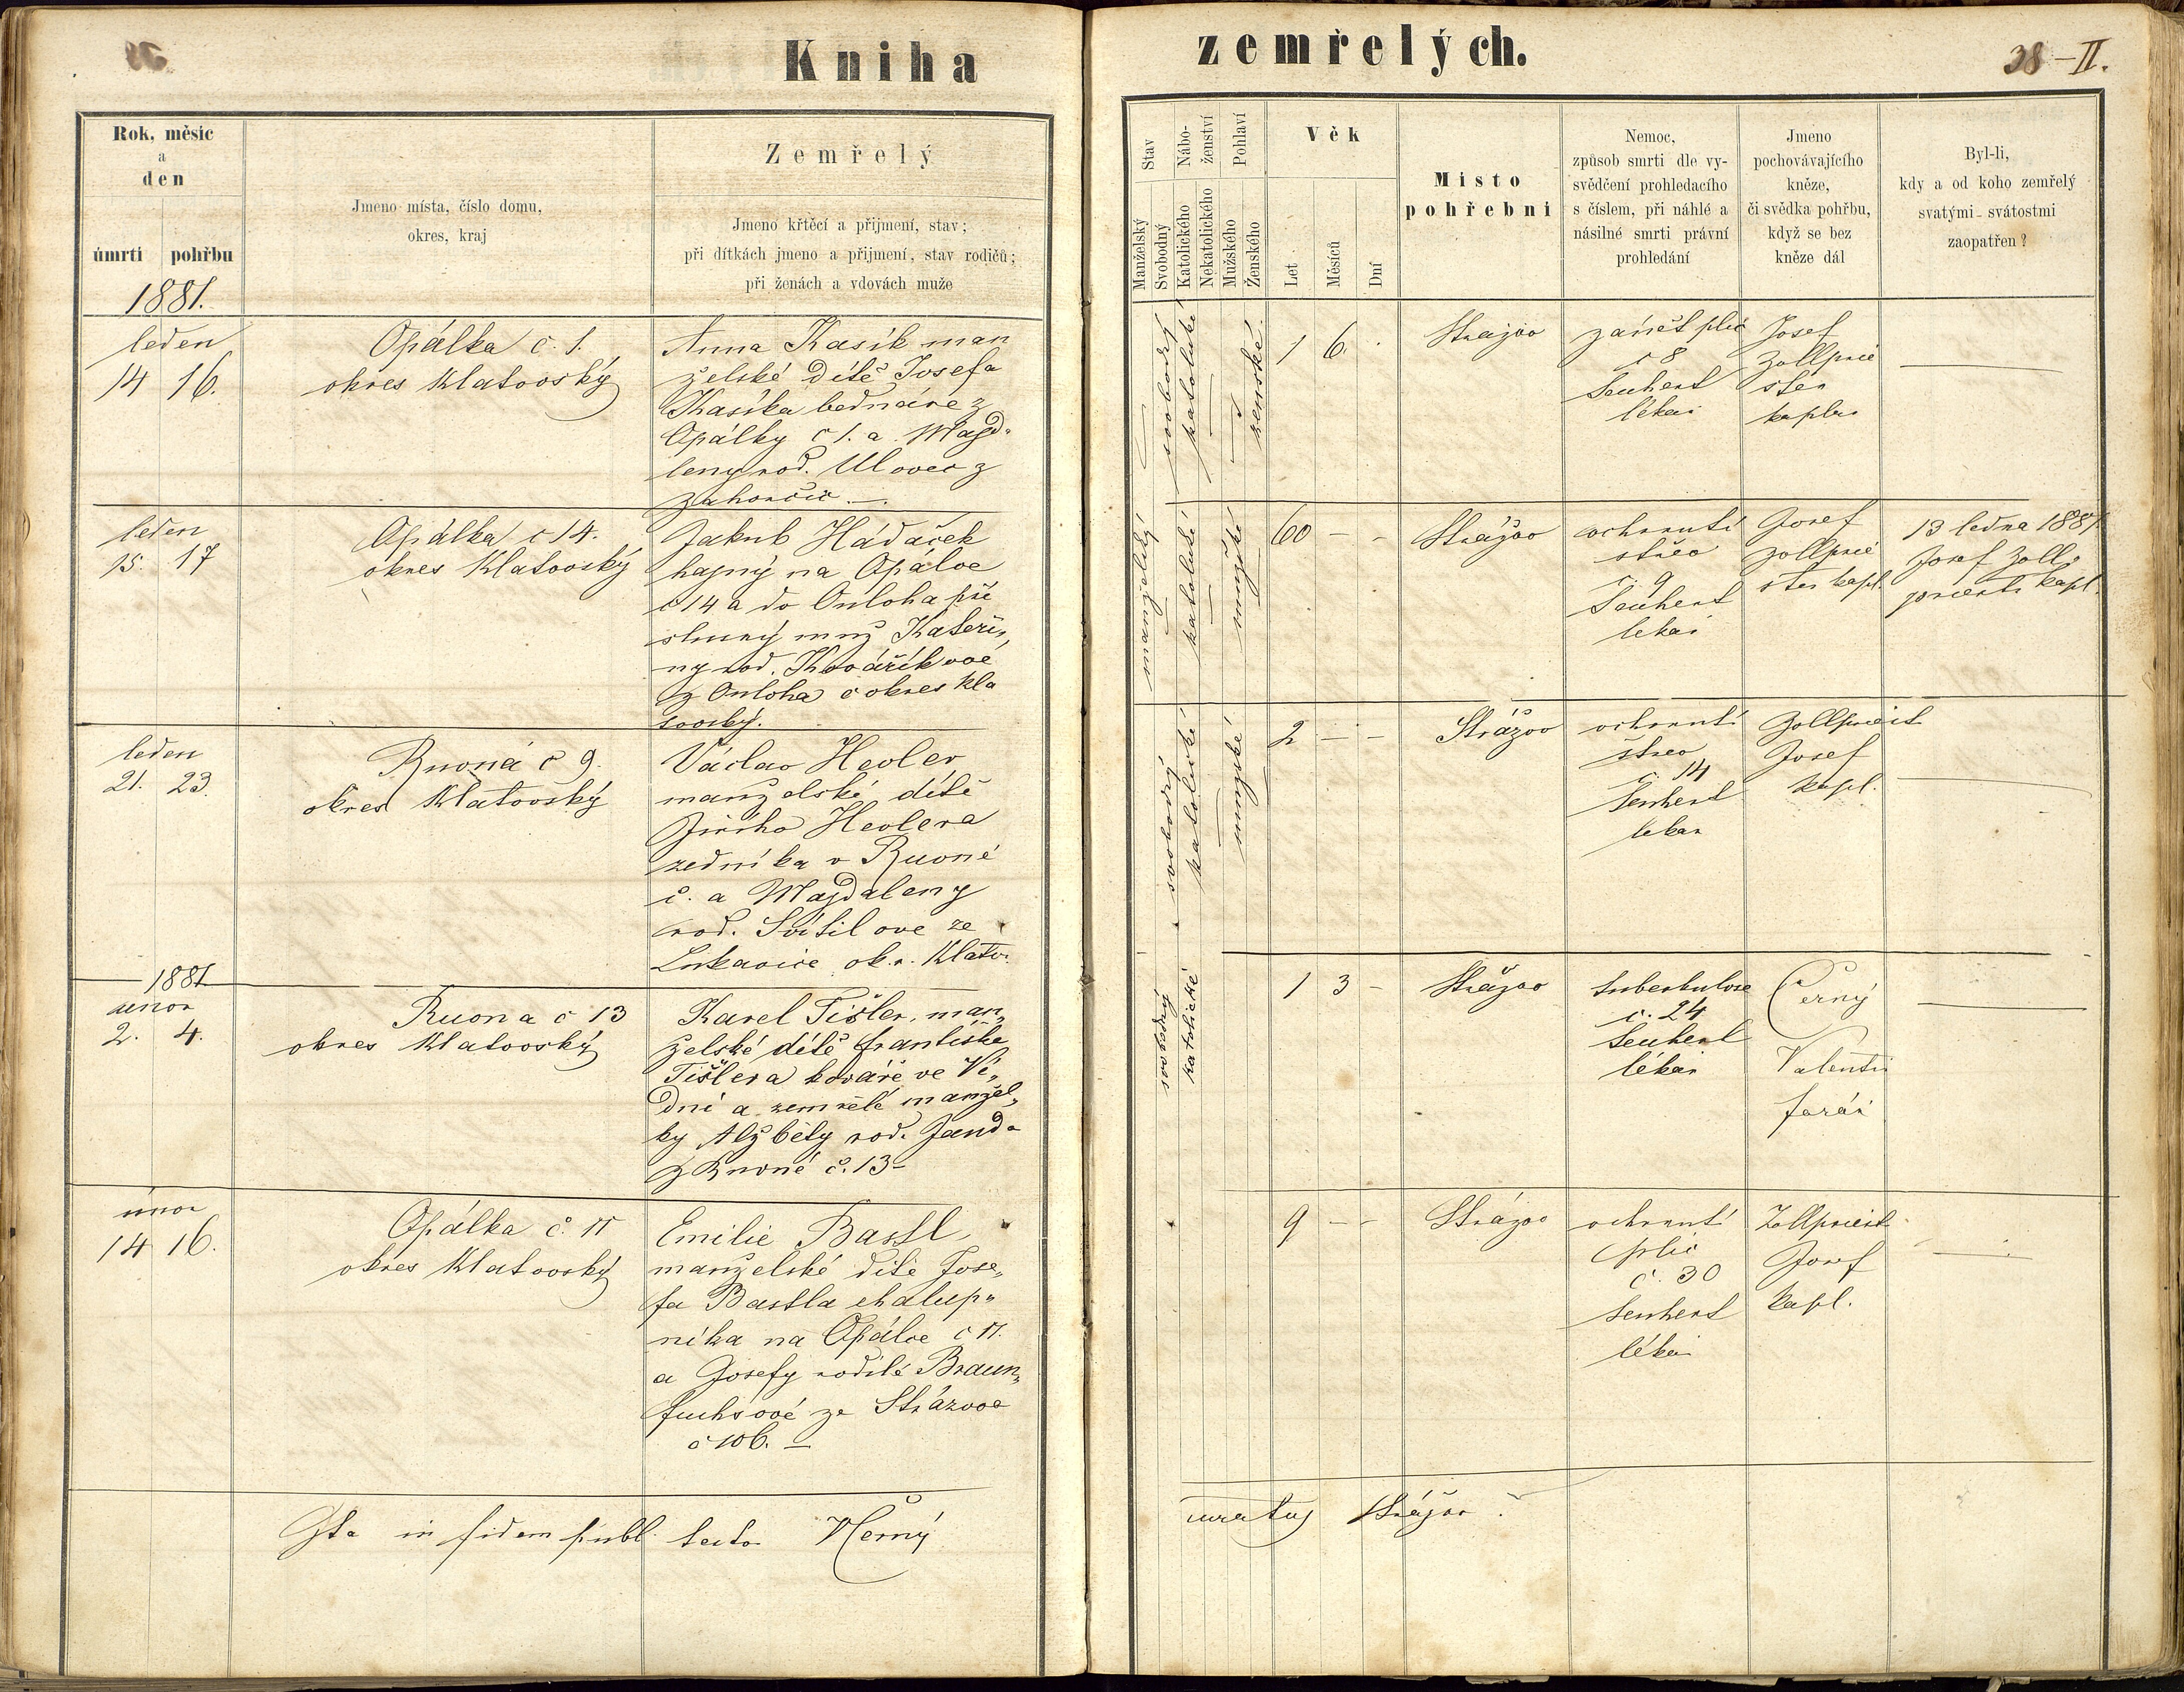 Kniha zemřelých.
38-II.
Rok, měsic
a
den
úmrti pohřbu
Jmeno místa, číslo domu,
okres, kraj
Zemřelý
Jmeno křtěcí a přijmení, stav;
při dítkách jmeno a přijmení, stav rodičů;
při ženách a vdovách muže
Stav
Manželský
Svobodný
Nábo-
ženství
Katolického
Nekatolického
Pohlaví
Mužského
Ženského
Věk
Let
Měsíců
Dní
Misto
pohřebni
Nemoc,
způsob smrti dle vy-
svědčení prohledacího
s číslem, při náhlé a
násilné smrti právní
prohledání
Jmeno
pochovávajícího
kněze,
či svědka pohřbu,
když se bez
kněze dál
Byl-li,
kdy a od koho zemřelý
svatými svátostmi
zaopatřen?
1881.
leden
14 16.
Opálka č. 1.
okres Klatovský
Anna Kasík man
želské dítě Josefa
Kasíka bednáře z
Opálky č 1. a Magd-
leny rod. Ulovec z
Zahorčic.
svobodný
katolické
ženské
1 6.
Strážov
zánět plic
č 8
Seuhent
lékař
Josef
Zollprie
ster
kaplan
leden
15. 17
Opálka č 14.
okres Klatovský
Jakub Hádáček
hajný na Opálce
č 14 a do Onloha pří
slušný muž Kateři„
ny rod. Kovaříkové
z Onloha č okres Kla
tovský.
manželský
katolické
mužské
60 - -
Strážov
ochrnutí
střev
č. 9
Seuhent
lékař
Josef
Zollprie
ster kapl.
13 ledna 1881
Josef Zoll-
priester kapl.
leden
21. 23.
Ruvná č 9.
okres Klatovský
Václav Hevler
manželské dítě
Jiřího Hevlera
zedníka v Ruvné
č. a Magdaleny
rod. Svítilove ze
Lukavice okr. Klatov.
svobodný
katolické
mužské
2 - -
Strážov
ochrnutí
střev
č. 14
Seuhent
lékař
Zollpriest
Josef
kapl.
1881
únor
2. 4.
Ruvna č 13
okres Klatovský
Karel Tišler, man„
želské dítě Františka
Tišlera kováře ve Ví„
dni a zemřelé manžel„
ky Alžběty rod. Janda
z Ruvné č. 13-
svobodný
katolické
1 3 -
Strážov
tuberkulose
č. 24
Seuhent
lékař
Černý
Valentin
farář
únor
14 16.
Opálka č. 11
okres Klatovský
Emilie Bastl,
manželské dítě Jose„
fa Bastla chalup„
níka na Opálce č 11.
a Josefy rodilé Braun„
fuchsové ze Strážova
č 106. -
9 - -
Strážov
ochrnutí
plic
č. 30
Seuhent
lékař
Zollpriest
Josef
kapl.
Ita in fidem publ testor VČerný
curatus Strážov.